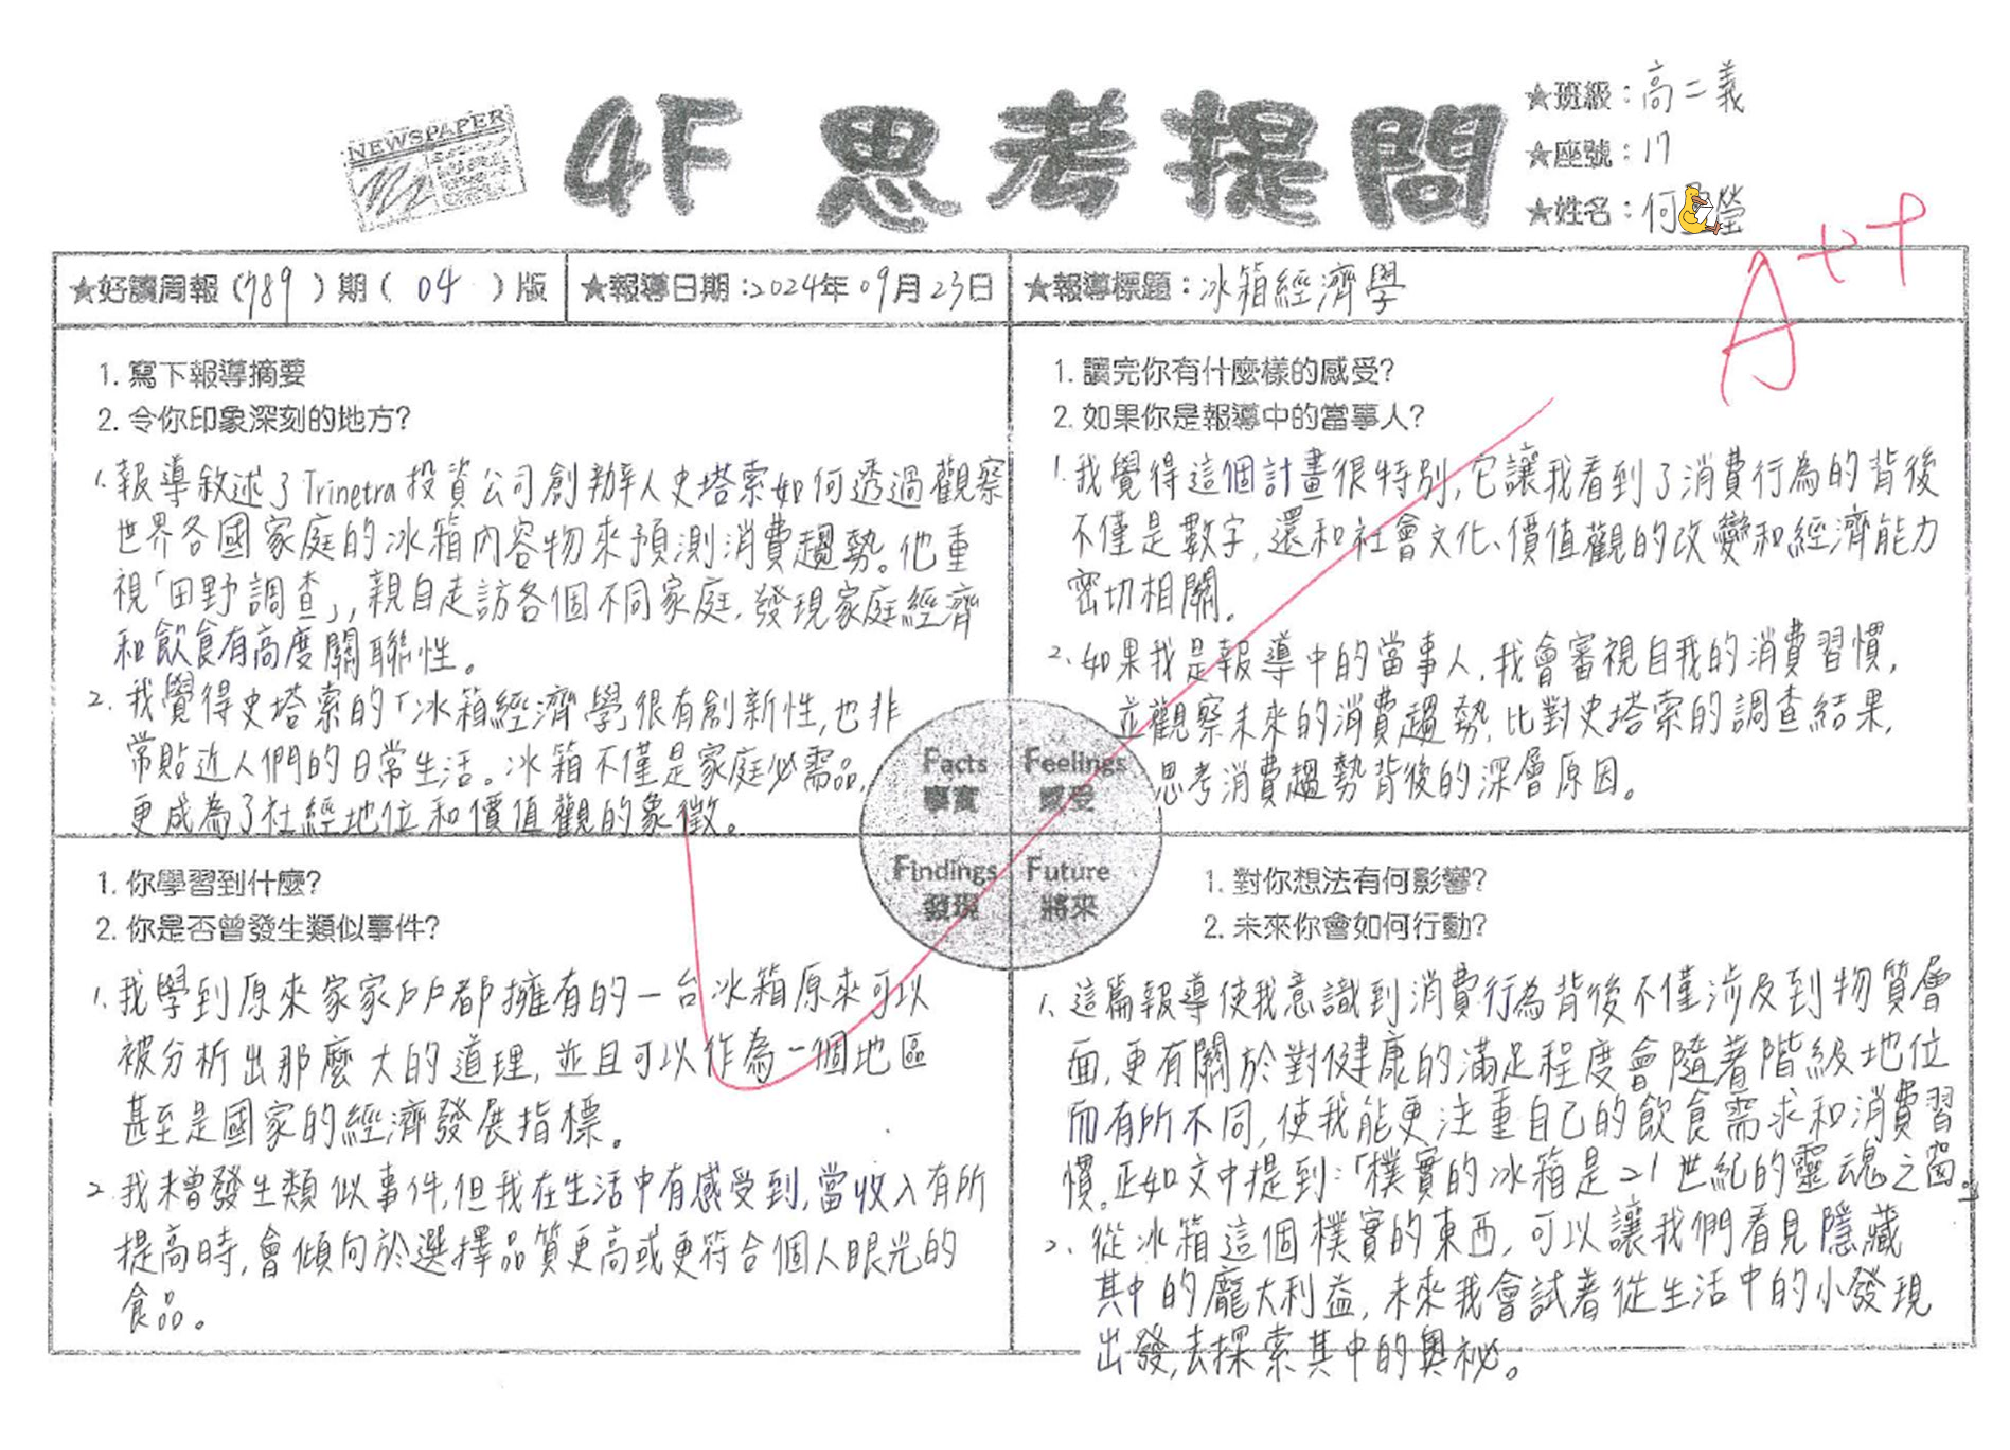 NEWSPAPER
4F 思考提問
★班級：高二義
★座號：17
★姓名：何 瑩
A++
★好讀周報（789）期（04）版
★報導日期：2024年09月23日
★報導標題：冰箱經濟學
1. 寫下報導摘要
2. 令你印象深刻的地方？
1. 報導敘述了Trinetra投資公司創辦人史塔索如何透過觀察
世界各國家庭的冰箱內容物來預測消費趨勢。他重
視「田野調查」，親自走訪各個不同家庭，發現家庭經濟
和飲食有高度關聯性。
2. 我覺得史塔索的「冰箱經濟學」很有創新性，也非
常貼近人們的日常生活。冰箱不僅是家庭必需品，
更成為了社經地位和價值觀的象徵。
1. 讀完你有什麼樣的感受？
2. 如果你是報導中的當事人？
1. 我覺得這個計畫很特別，它讓我看到了消費行為的背後
不僅是數字，還和社會文化、價值觀的改變和經濟能力
密切相關。
2. 如果我是報導中的當事人，我會審視自我的消費習慣，
並觀察未來的消費趨勢，比對史塔索的調查結果，
思考消費趨勢背後的深層原因。
Facts
事實
Feelings
感受
Findings
發現
Future
將來
1. 你學習到什麼？
2. 你是否曾發生類似事件？
1. 我學到原來家家戶戶都擁有的一台冰箱原來可以
被分析出那麼大的道理，並且可以作為一個地區
甚至是國家的經濟發展指標。
2. 我未曾發生類似事件，但我在生活中有感受到，當收入有所
提高時，會傾向於選擇品質更高或更符合個人眼光的
食品。
1. 對你想法有何影響？
2. 未來你會如何行動？
1. 這篇報導使我意識到消費行為背後不僅涉及到物質層
面，更有關於對健康的滿足程度會隨著階級地位
而有所不同，使我能更注重自己的飲食需求和消費習
慣。正如文中提到：「樸實的冰箱是21世紀的靈魂之窗。」
2. 從冰箱這個樸實的東西，可以讓我們看見隱藏
其中的龐大利益，未來我會試著從生活中的小發現
出發，去探索其中的奧祕。